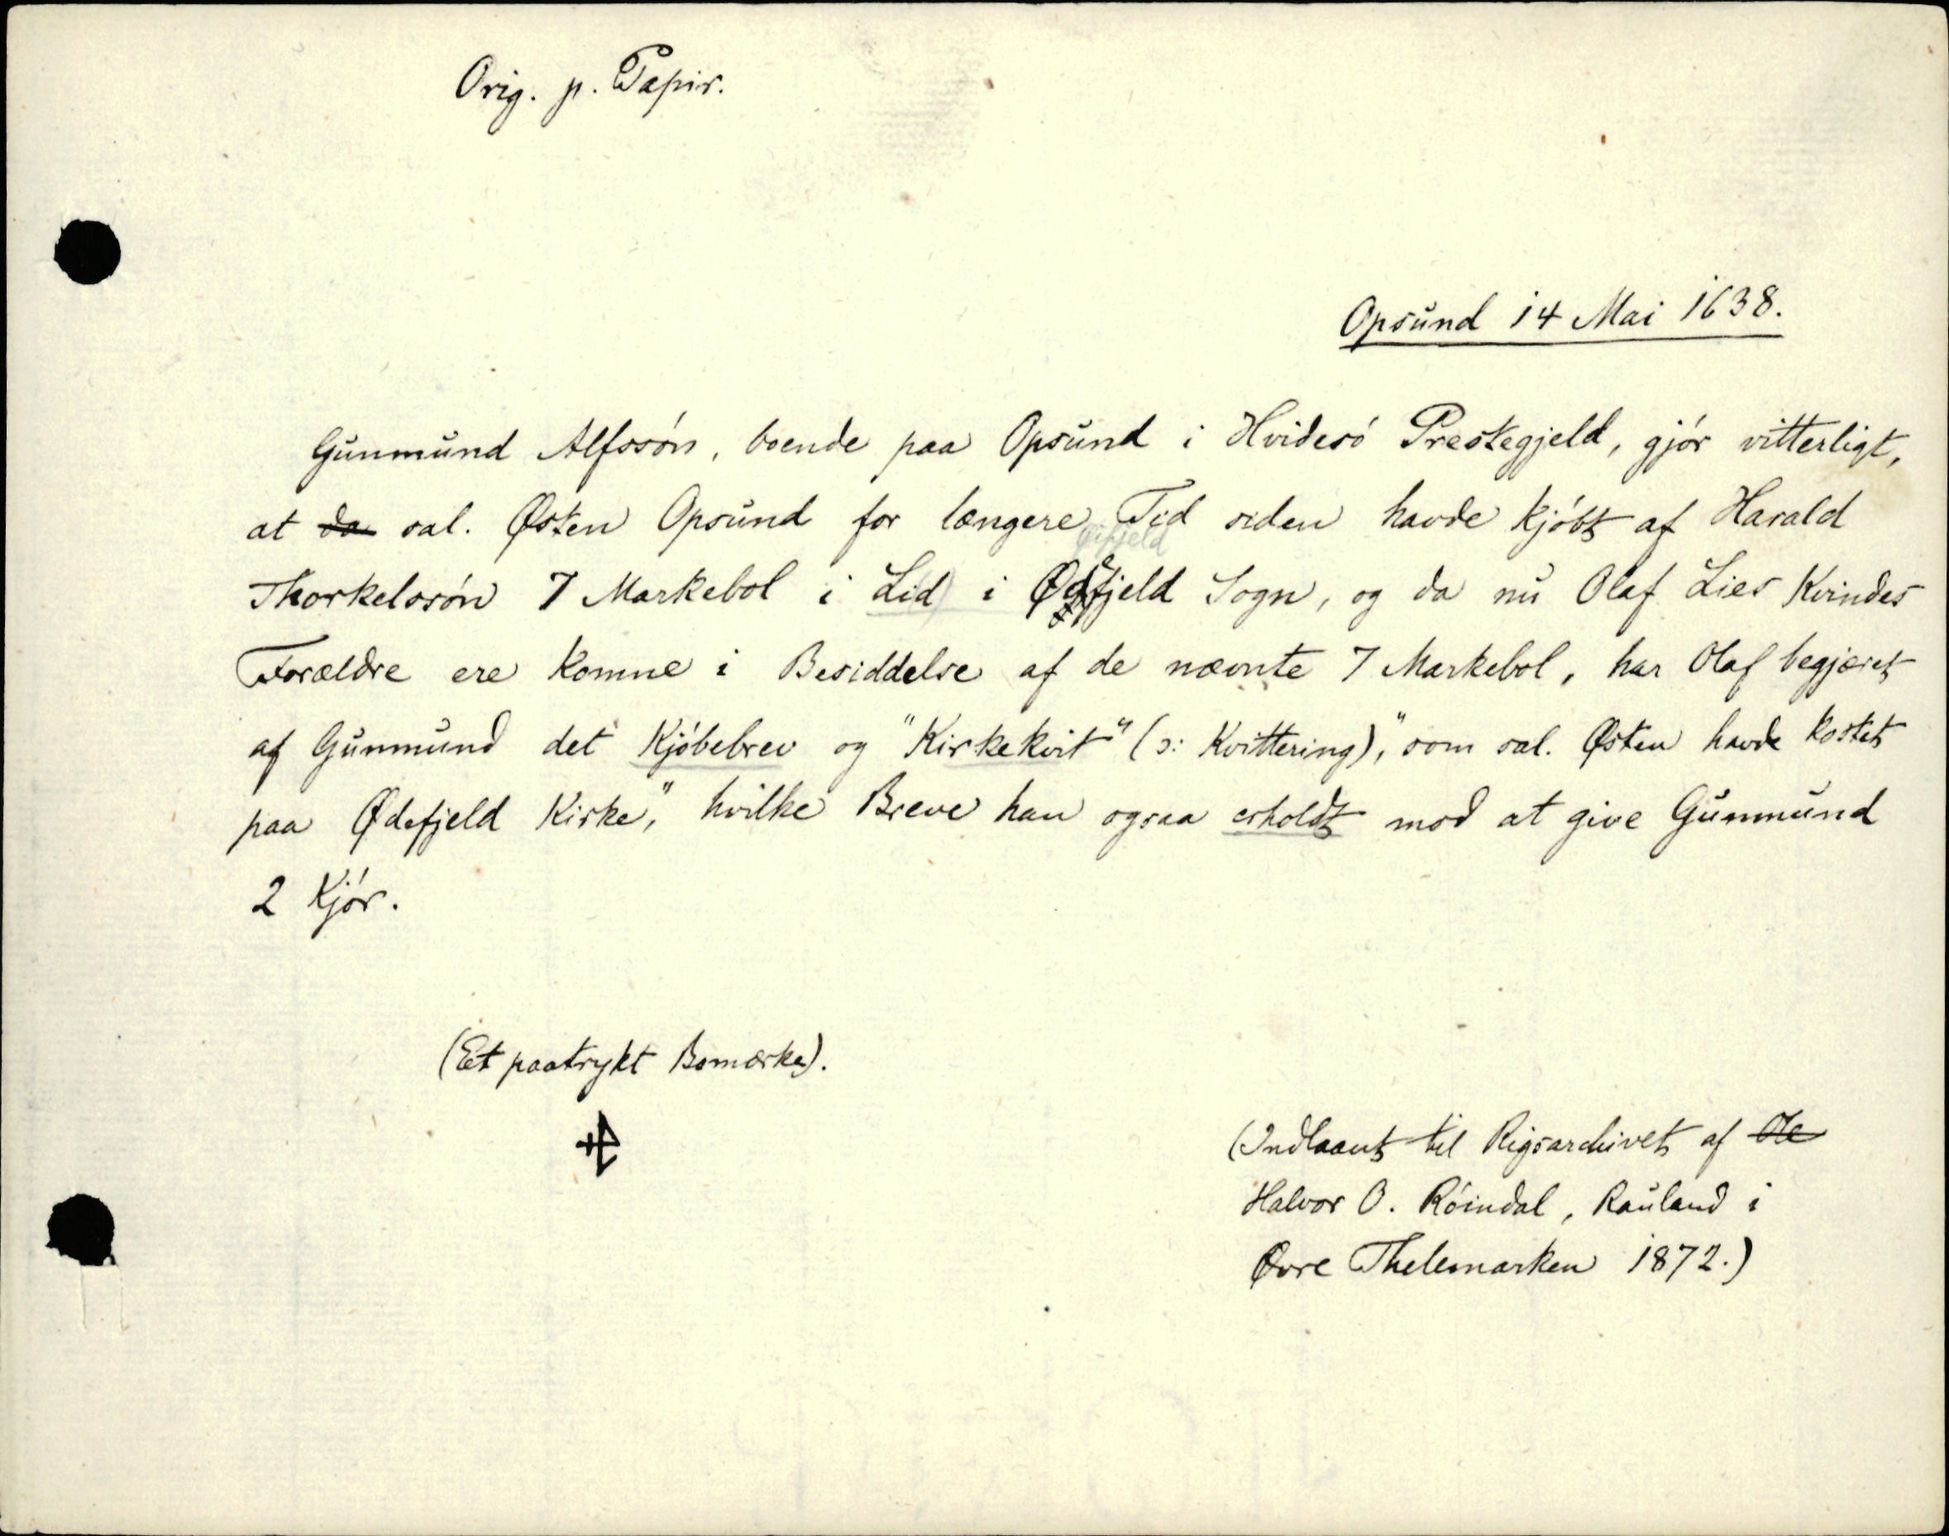 Orig. p. Papir.
Opsund 14 Mai 1638.
Gunmund Alfssón, boende paa Opsund i Hvidesó Prestegjeld, gjór vitterligt,
at da sal. Østen Opsund for længere Tid siden havde kjóbt af Harald
Thorkelssón 7 Markebol i Lid i Ødefjeld Sogn, og da nu Olaf Lies Kvindes
Forældre ere komne i Besiddelse af de nævnte 7 Markebol, har Olaf begjæret
af Gunmund det Kjóbebrev og "Kirkekvit" (ɔ: Kvittering), "som sal. Østen havde kostet
paa Ødefjeld Kirke", hvilke Breve han ogsaa erholdt mod at give Gunmund
2 Kjór.
(Et paatrykt Bomærke).
(Indlaant til Rigsarchivet af Ole
Halvor O. Róindal, Rauland i
Øvre Thelemarken 1872.)